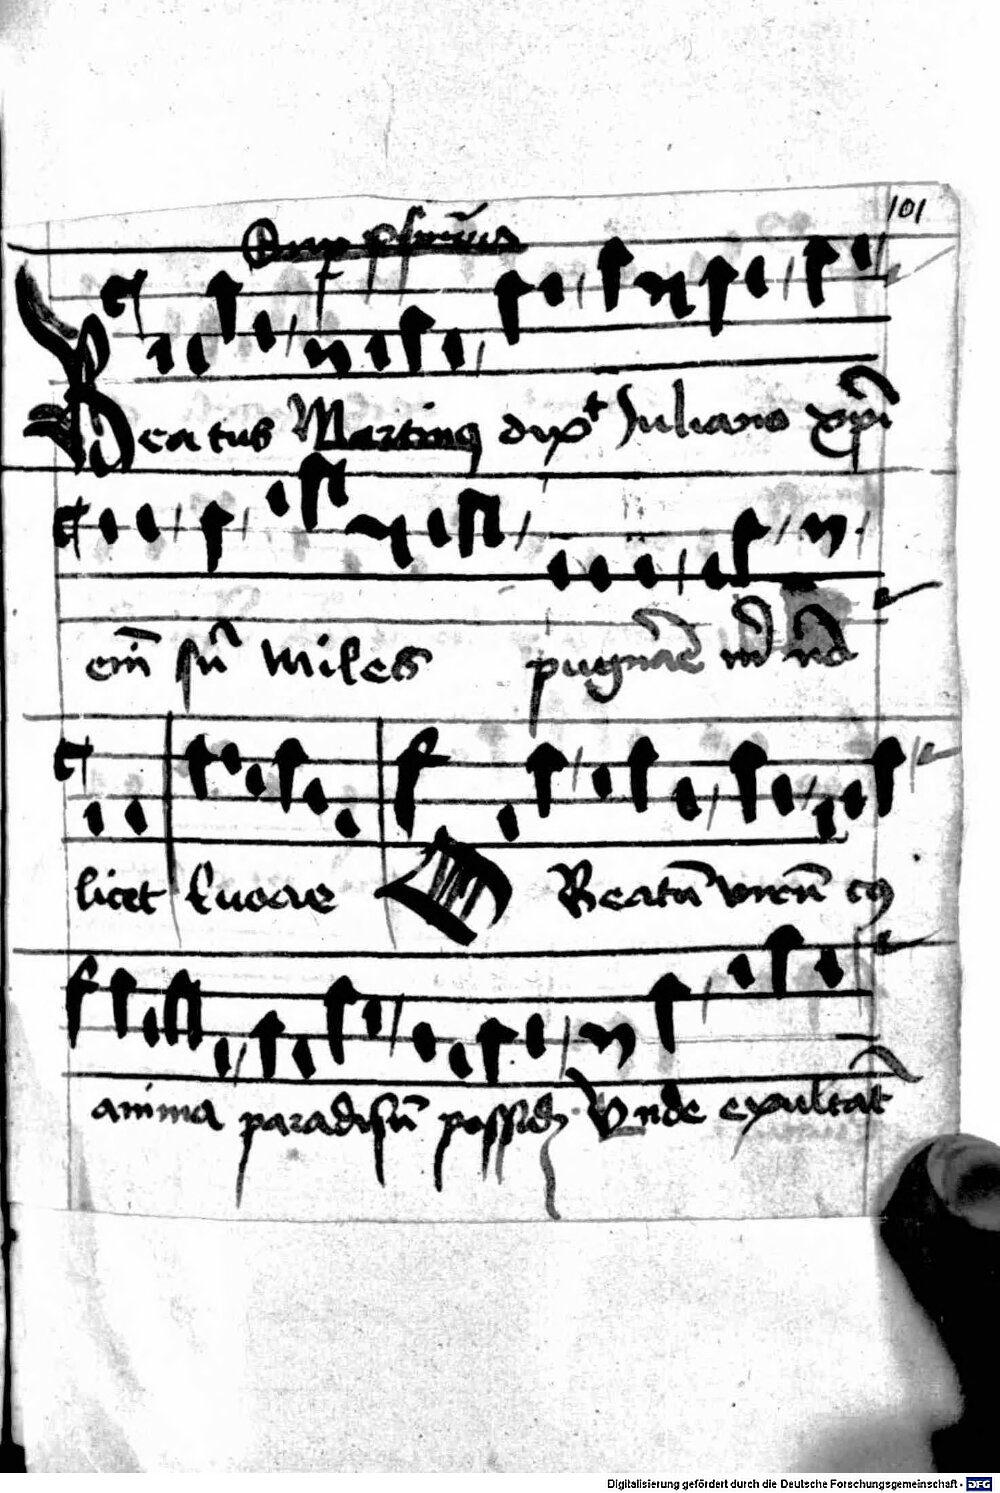 101
Beatus Martinꝯ dixͭ Juliano xp̄i
em̄ sū miles pugnāe m̄ nō
licet Euoae Beatū virū cꝯ
anima paradisū possidꝫ Vnde exultāt
Digitalisierung gefördert durch die Deutsche Forschungsgemeinschaft - DFG